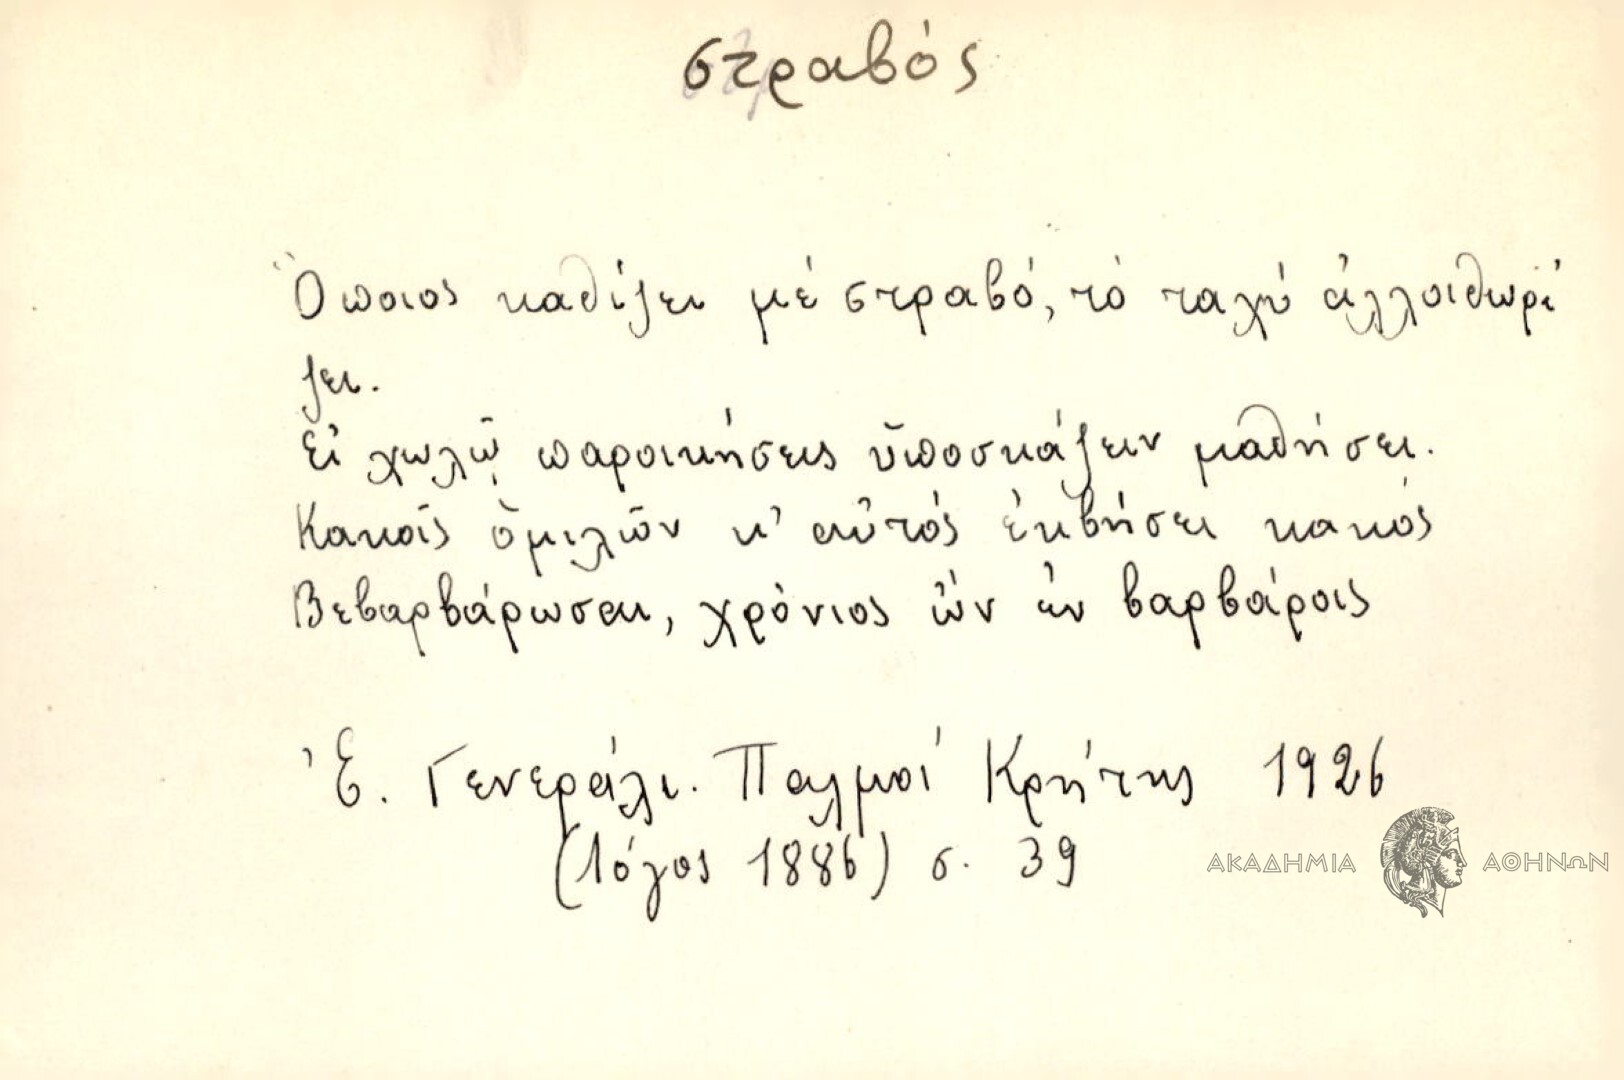 στραβός
Ὅποιος καθίζει μέ στραβό, τό ταχύ ἀλλοιθωρί
ζει.
Εἰ χωλῷ παροικήσεις ὑποσκάζειν μαθήσει.
Κακοῖς ὁμιλῶν κ' αὐτός ἐκβήσει κακός
Βεβαρβάρωσαι, χρόνιος ὤν ἐν βαρβάροις
Ἐ. Γενεράλι. Παλμοί Κρήτης 1926
(Λόγος 1886) σ. 39
ΑΚΑΔΗΜΙΑ ΑΘΗΝΩΝ